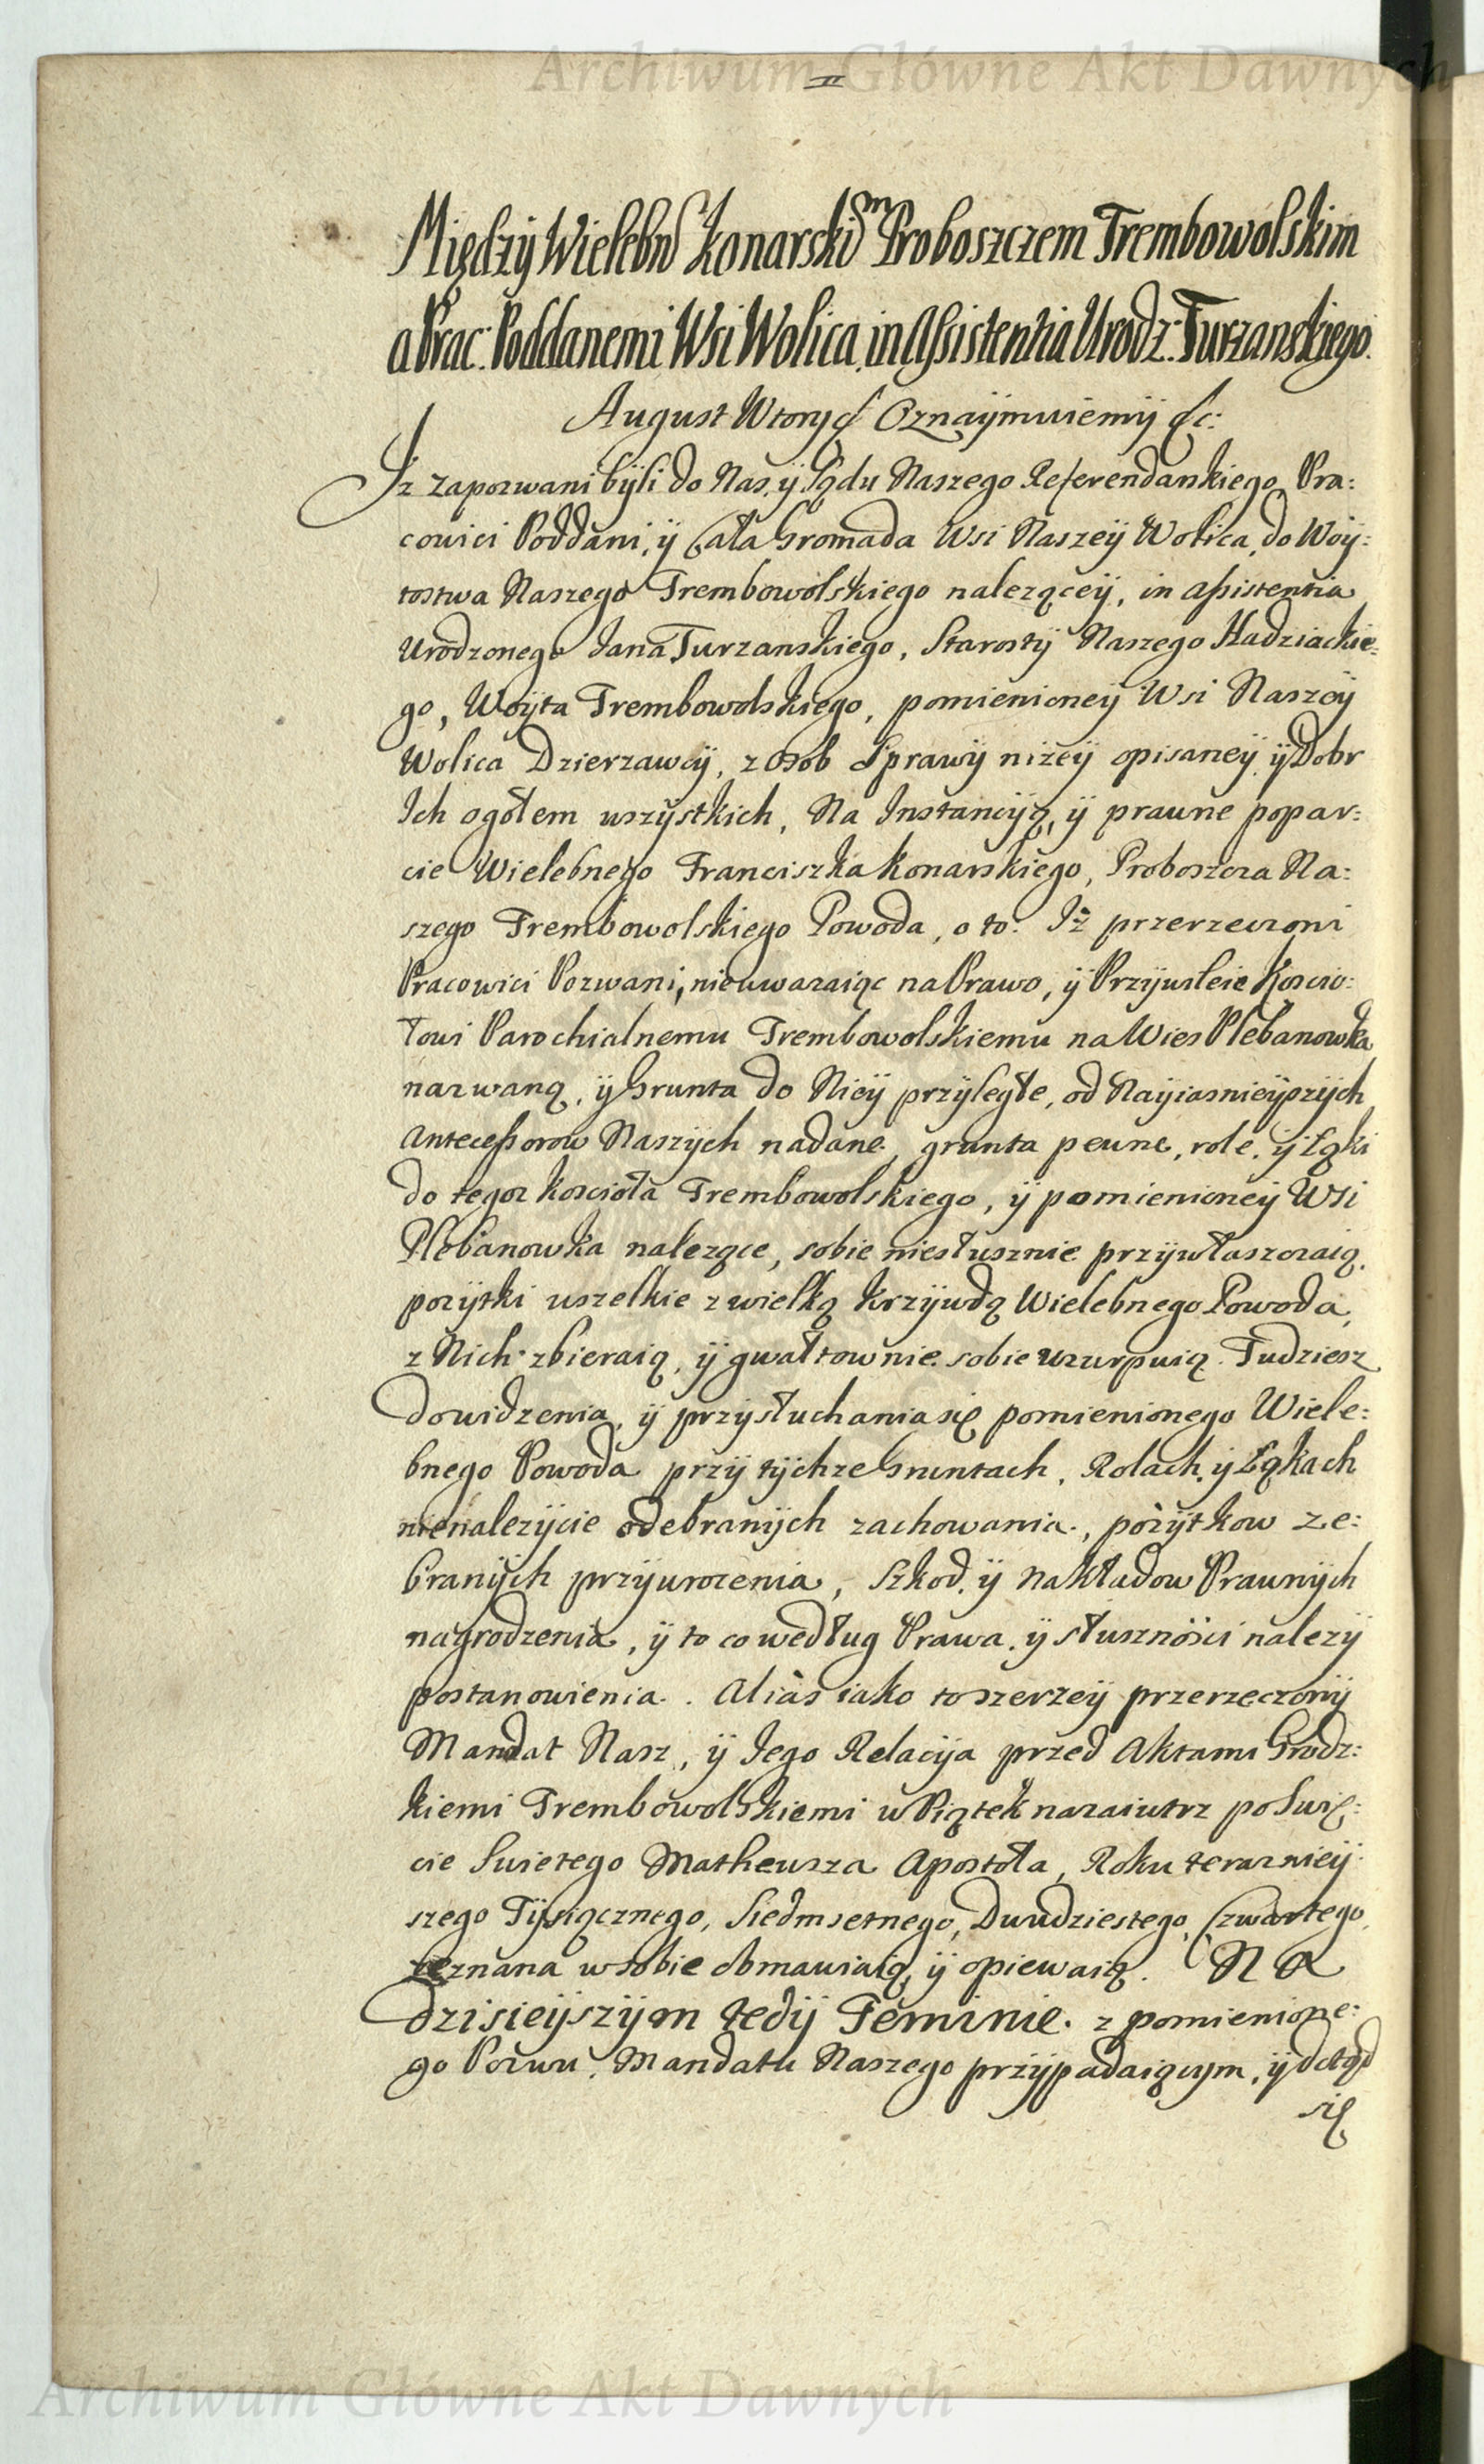 Archiwum Główne Akt Dawnych
II
Między Wielebn Konarskim Proboszczem Trembowolskim
a Prac: Poddanemi Wsi Wolica, in Assistentia Urodz: Turzanskiego.
August Wtory & Oznaÿmuiemÿ &c:
Iz zapozwani bÿli do Nas, ÿ Sądu Naszego Referendarskiego, Pra:
cowici Poddani, ÿ Cała Gromada Wsi Naszeÿ Wolica, do Woÿ:
tostwa Naszego Trembowolskiego nalezączeÿ, in assistentia
Urodzonego Jana Turzanskiego, Starostÿ Naszego Hadziackie:
go, Woÿta Trembowolskiego, pomienioneÿ Wsi Naszeÿ
Wolica Dzierzawcÿ, z Osob Sprawÿ nizeÿ opisaneÿ, ÿ Dobr
Ich ogołem wszÿstkich, Na Instancÿą, ÿ prawne popar:
cie Wielebnego Franciszka Konarskiego, Proboszcza Na:
szego Trembowolskiego Powoda, o to: Iż przerzeczoni
Pracowici Pozwani, nieuwazaiąc na Prawo, ÿ Przÿwileie Koscio:
łowi Parochialnemu Trembowolskiemu na Wies Plebanowka
nazwaną, ÿ Grunta do Nieÿ przÿległe, od Naÿiasnieÿszÿch
Antecessorow Naszÿch nadane, grunta pewne, role, ÿ Łąki
do tegoz Koscioła Trembowolskiego, ÿ pomienioneÿ Wsi
Plebanowka nalezące, sobie niesłusznie przÿwłaszczaią,
pozÿtki wszelkie z wielką Krzÿwdą Wielebnego Powoda,
z Nich zbieraią, ÿ gwałtownie sobie uzurpuią. Tudziesz
do widzenia, ÿ przÿsłuchania się pomienionego Wiele:
bnego Powoda przÿ tÿchze Gruntach, Rolach, ÿ Łąkach
nienalezÿcie odebranÿch zachowania, pozÿtkow ze:
branÿch przÿwrocenia, Szkod, ÿ Nakładow Prawnÿch
nagrodzenia, ÿ to co według Prawa, ÿ słusznosci nalezÿ
postanowienia. Alias iako to szerzeÿ przerzeczonÿ
Mandat Nasz, ÿ Jego Relacÿa przed Aktami Grodz:
kiemi Trembowolskiemi w Piątek nazaiutrz po Swię:
cie Swietego Matheusza Apostoła, Roku terazniey:
szego Tÿsiącznego, Siedmsetnego, Dwudziestego, Czwartego,
zeznana w sobie obmawiaią, ÿ opiewaią. NA
dzisieÿszÿm tedÿ Terminie. z pomienione:
go Pozwu, Mandatu Naszego przÿpadaiącÿm, ÿ dotąd
się
Archiwum Główne Akt Dawnych